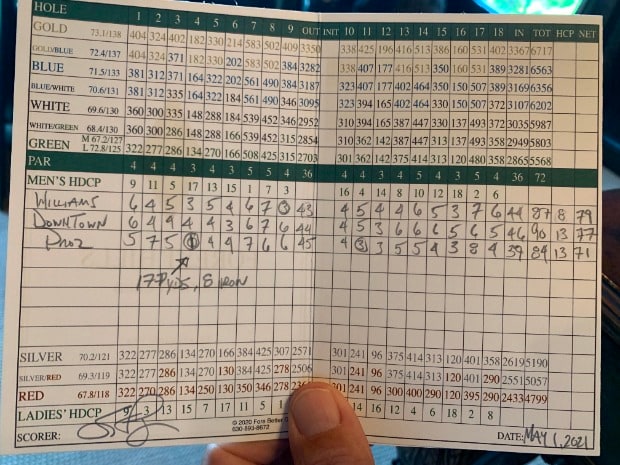 HOLE 1 2 3 4 5 6 7 8 9 OUT INIT 10 11 12 13 14 15 16 17 18 IN TOT HCP NET
GOLD 73.1/138 404 324 402 182 330 214 583 502 409 3350 338 425 196 416 513 386 160 531 402 3367 6717
GOLD/BLUE 72.4/137 404 324 371 182 330 202 583 502 384 3282 338 407 177 416 513 350 160 531 389 3281 6563
BLUE 71.5/133 381 312 371 164 322 202 561 490 384 3187 323 407 177 402 464 350 150 507 389 3169 6356
BLUE/WHITE 70.6/131 381 312 335 164 322 184 561 490 346 3095 323 394 165 402 464 330 150 507 372 3107 6202
WHITE 69.6/130 360 300 335 148 288 184 539 452 346 2952 310 394 165 387 447 330 137 493 372 3035 5987
WHITE/GREEN 68.4/130 360 300 286 148 288 166 539 452 315 2854 310 362 142 387 447 313 137 493 358 2949 5803
GREEN M 67.2/127 L 72.8/125 322 277 286 134 270 166 508 425 315 2703 301 362 142 375 414 313 120 480 358 2865 5568
PAR 4 4 4 3 4 3 5 5 4 36 4 4 3 4 5 4 3 5 4 36 72
MEN'S HDCP 9 11 5 17 13 15 1 7 3 16 4 14 8 10 12 18 2 6
WILLIAMS 6 4 5 3 5 4 6 7 3 43 4 5 4 4 6 5 3 7 6 44 87 8 79
DOWNTOWN 6 4 4 4 3 6 7 6 44 4 5 3 6 6 6 5 6 5 46 90 13 77
PROZ 5 7 5 1 4 4 7 6 6 45 4 3 3 5 5 4 3 8 4 39 84 13 71
177 YDS, 8 IRON
SILVER 70.2/121 322 277 286 134 270 166 384 425 307 2571 301 241 96 375 414 313 120 401 358 2619 5190
SILVER/RED 69.3/119 322 277 286 134 270 130 384 425 278 2506 301 241 96 375 414 313 120 401 290 2551 5057
RED 67.8/118 322 270 286 134 250 130 350 346 278 301 241 96 300 400 290 120 395 290 2433 4799
LADIES' HDCP 9 3 13 15 7 17 11 5 14 16 12 4 6 18 2 8
© 2020 Fore Better
630-893-8672
SCORER: DATE: MAY 1, 2021